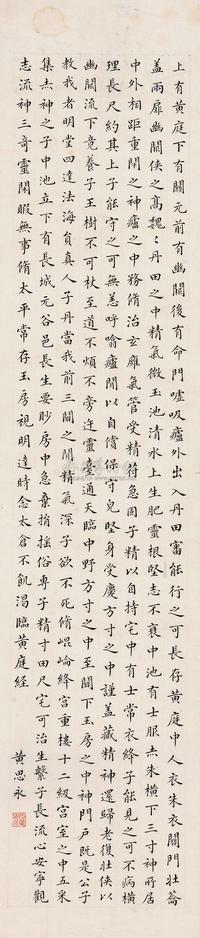 上有黃庭下有關元前有幽闕後有命門噓吸廬外出入丹田審能行之可長存黃庭中人衣朱衣關門壯蘥
蓋兩扉幽闕俠之高巍々丹田之中精氣微玉池清水上生肥靈根堅志不衰中池有士服赤朱橫下三寸神所居
中外相距重閉之神廬之中務脩治玄廱氣管受精符急固子精以自持宅中有士常衣絳子能見之可不病橫
理長尺約其上子能守之可無恙呼噏廬間以自償保守兒堅身受慶方寸之中謹蓋藏精神還歸老復壯俠以
幽闕流下竟養子玉樹不可杖至道不煩不旁迕靈臺通天臨中野方寸之中至關下玉房之中神門戶既是公子
教我者明堂四達法海員真人子丹當我前三關之間精氣深子欲不死脩崐崘絳宮重樓十二級宮室之中五采
集赤神之子中池立下有長城元谷邑長生要眇房中急棄捐搖俗專子精寸田尺宅可治生繫子長流心安寧觀
志流神三奇靈閒暇無事脩太平常存玉房視明達時念太倉不飢渴臨黃庭經
黃思永